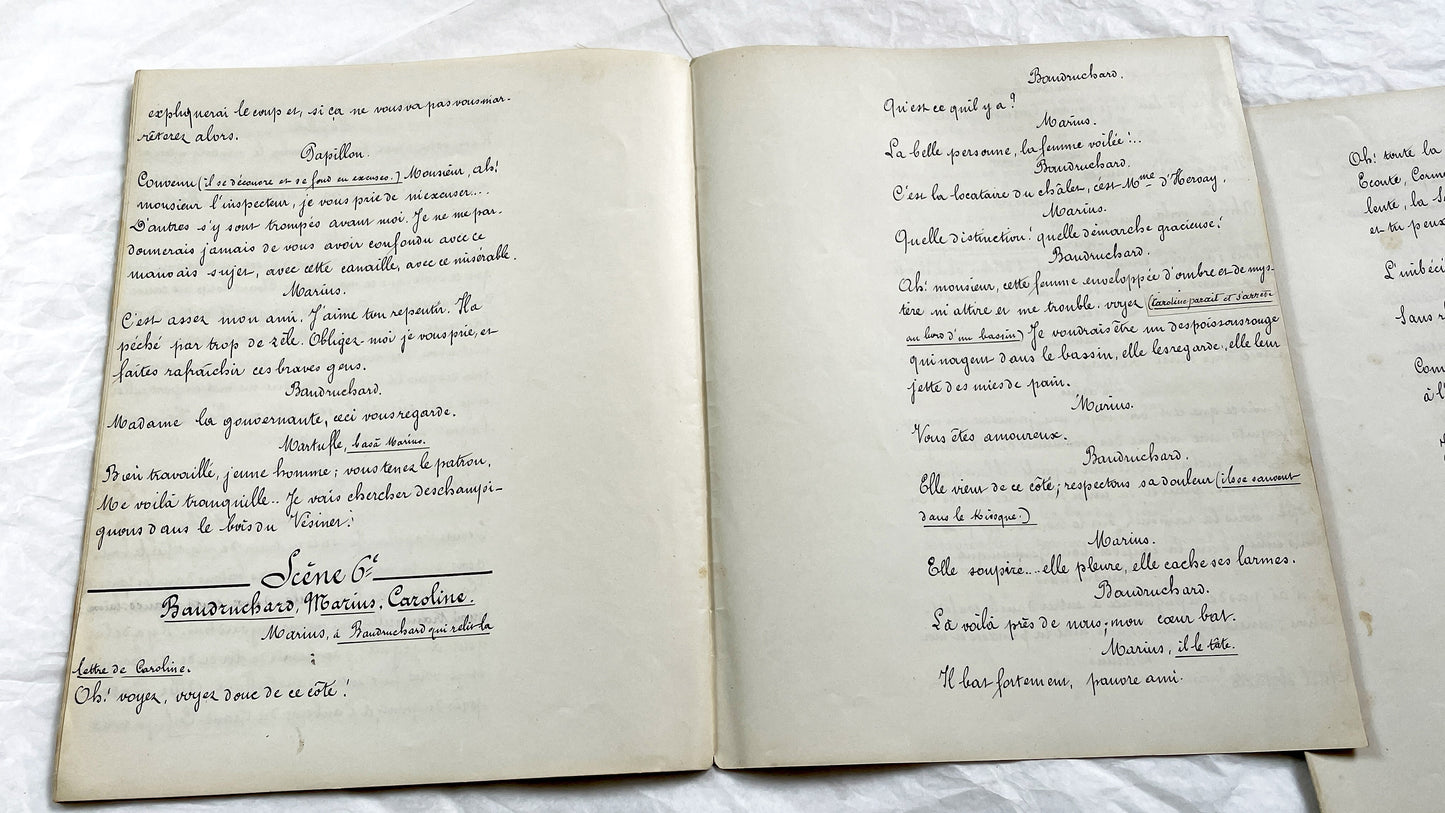 expliquerai le coup et, si ça ne vous va pas vous m'ar-
rêterez alors.
Papillon.
Convenu (il se découvre et se fond en excuses.) Monsieur, ah!
monsieur l'inspecteur, je vous prie de m'excuser...
D'autres s'y sont trompés avant moi. Je ne me par-
donnerais jamais de vous avoir confondu avec ce
mauvais sujet, avec cette canaille, avec ce misérable.
Marius.
C'est assez mon ami. J'aime ton repentir. Tu a
péché par trop de zèle. Obligez-moi je vous prie, et
faites rafraîchir ces braves gens.
Baudruchard.
Madame la gouvernante, ceci vous regarde.
Martufle, bas à Marius.
Bien travaillé, jeune homme; vous tenez le patron,
Me voilà tranquille.. Je vais chercher des champi-
gnons dans le bois du Vésinet!
Scène 6e
Baudruchard, Marius, Caroline.
Marius, à Baudruchard qui relit la
lettre de Caroline.
Oh! voyez, voyez donc de ce côté!
Baudruchard.
Qu'est ce qu'il y a?
Marius.
La belle personne, la femme voilée!..
Baudruchard.
C'est la locataire du châlet, c'est Mme d'Hervay.
Marius.
Quelle distinction! quelle démarche gracieuse!
Baudruchard.
Ah! monsieur, cette femme enveloppée d'ombre et de mys-
tère m'attire et me trouble. voyez (Caroline paraît et s'arrête
au bord d'un bassin) Je voudrais être un des poissons rouge
qui nagent dans le bassin, elle les regarde, elle leur
jette des mies de pain.
Marius.
Vous êtes amoureux.
Baudruchard.
Elle vient de ce côté; respectons sa douleur (ils se sauvent
dans le Kiosque.)
Marius.
Elle soupire.... elle pleure, elle cache ses larmes.
Baudruchard.
La voilà près de nous; mon cœur bat.
Marius, il le tâte.
Il bat fortement, pauvre ami.
Oh! toute la
Ecoute,
lente, la
et tu peux
L'imbéci
Sans
Com
à l'